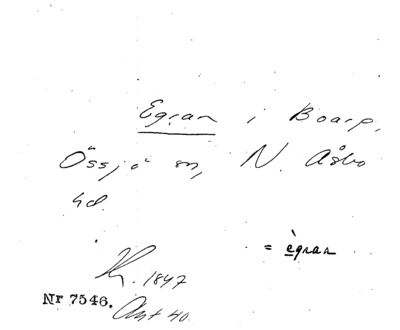 Egran i Boarp,
Össjö sn, N. Åsbo
hd.
= ègran
1847
Nr 7546. Ant 40.